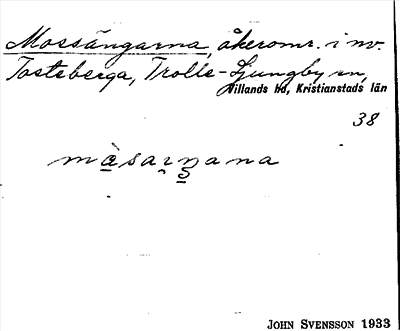 Mossängarna, åkeromr. i nv.
Tosteberga, Trolle-Ljungby sn,
Villands hd, Kristianstads län
38
màsaṛŋana
JOHN SVENSSON 1933